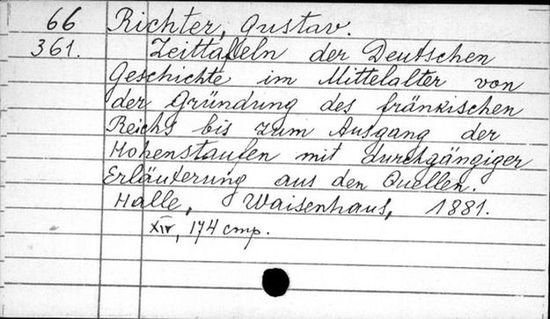 66 Richter, Gustav.
361. Zeittafeln der Deutschen
Geschichte im Mittelalter von
der Gründung des fränkischen
Reichs bis zum Ausgang der
Hohenstaufen mit durchgängiger
Erläuterung aus den Quellen.
Halle, Waisenhaus, 1881.
XIV, 174 cmp.